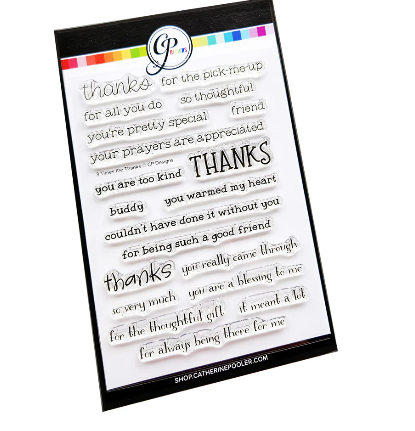 CP
DESIGNS
thanks for the pick-me-up
for all you do so thoughtful
you're pretty special friend
your prayers are appreciated
THANKS
you are too kind
buddy you warmed my heart
couldn't have done it without you
for being such a good friend
thanks you really came through
so very much you are a blessing to me
for the thoughtful gift it meant a lot
for always being there for me
SHOP.CATHERINEPOOLER.COM